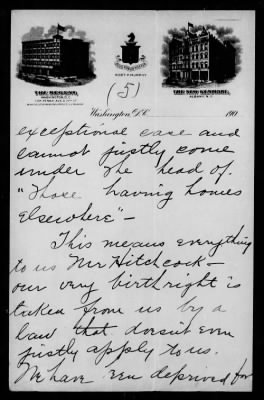 THE REGENT,
WASHINGTON, D.C.
KENT P. MURPHY
THE NEW KENMORE,
ALBANY, N.Y.
(5)
Washington, D.C. 190
exceptional case and
cannot justly come
under the head of.
"Those having homes
Elsewhere" –
This means everything
to us Mr Hitchcock –
our very birthright is
taken from us by a
law that doesn't even
justly apply to us.
We have been deprived for